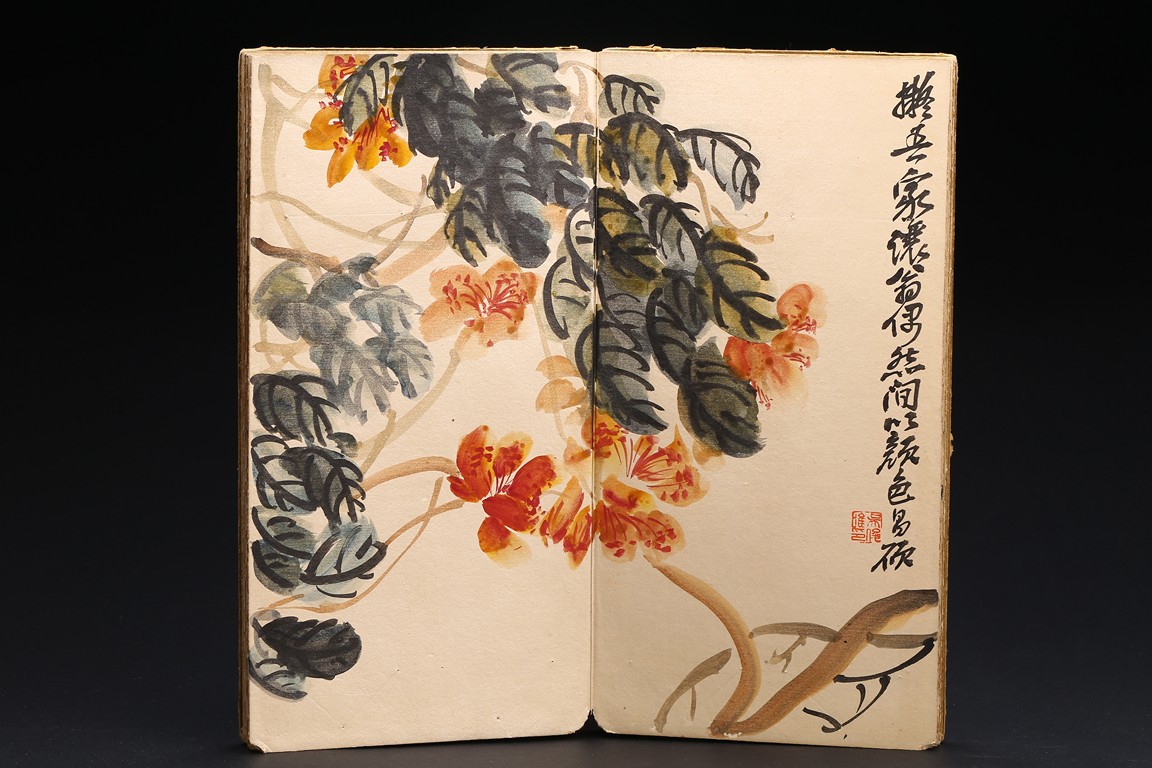 擬吾家讓翁偶然間以顏色昌碩